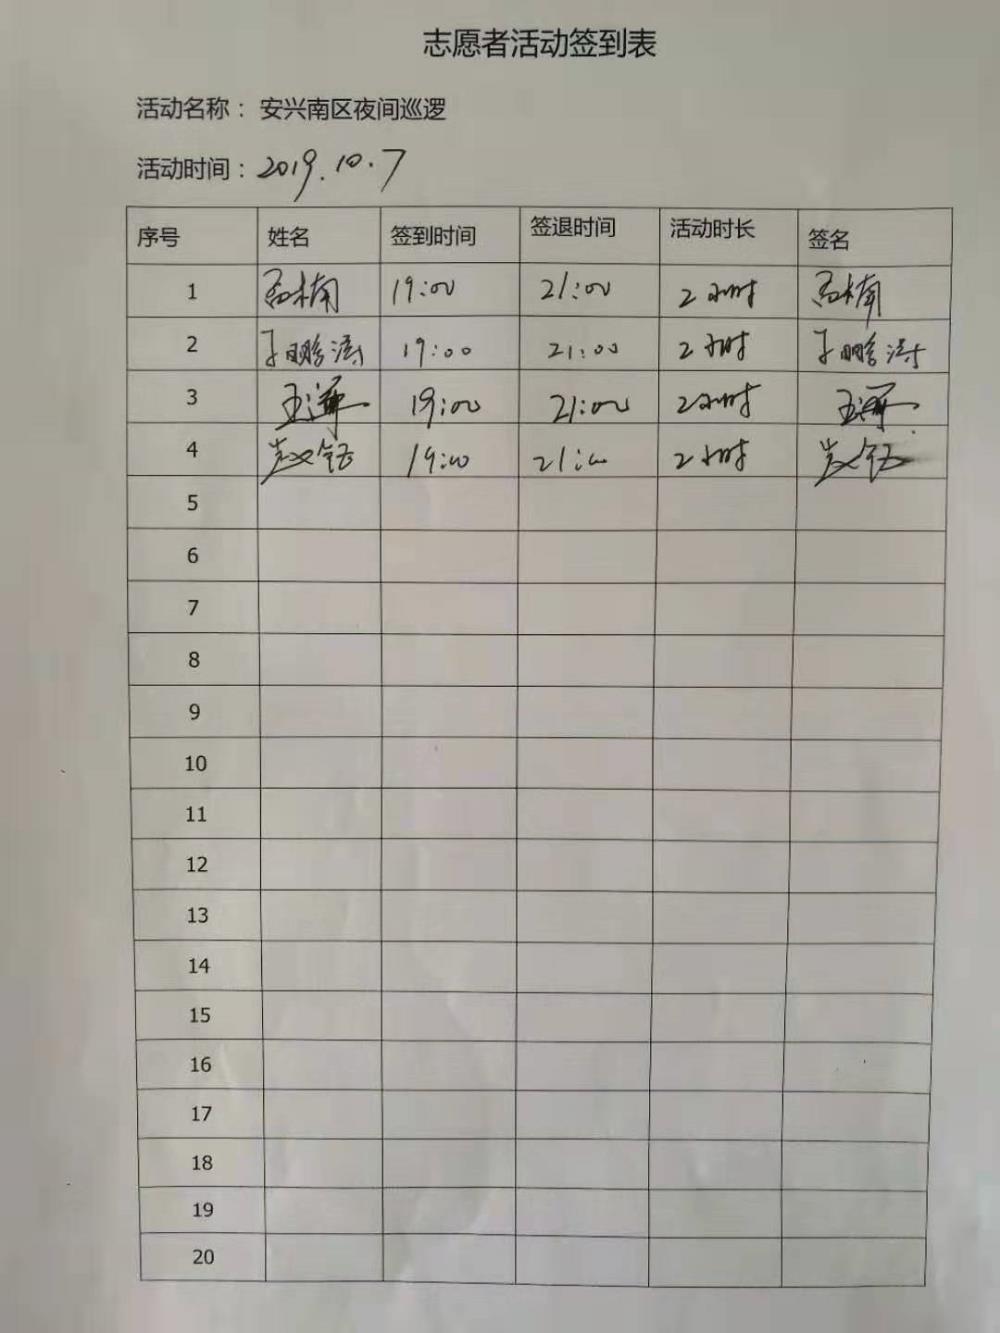 志愿者活动签到表
活动名称： 安兴南区夜间巡逻
活动时间：2019.10.7
序号 姓名 签到时间 签退时间 活动时长 签名
1 19:00 21:00 2小时
2 王鹏涛 19:00 21:00 2小时 王鹏涛
3 19:00 21:00 2小时
4 19:00 21:00 2小时
5
6
7
8
9
10
11
12
13
14
15
16
17
18
19
20